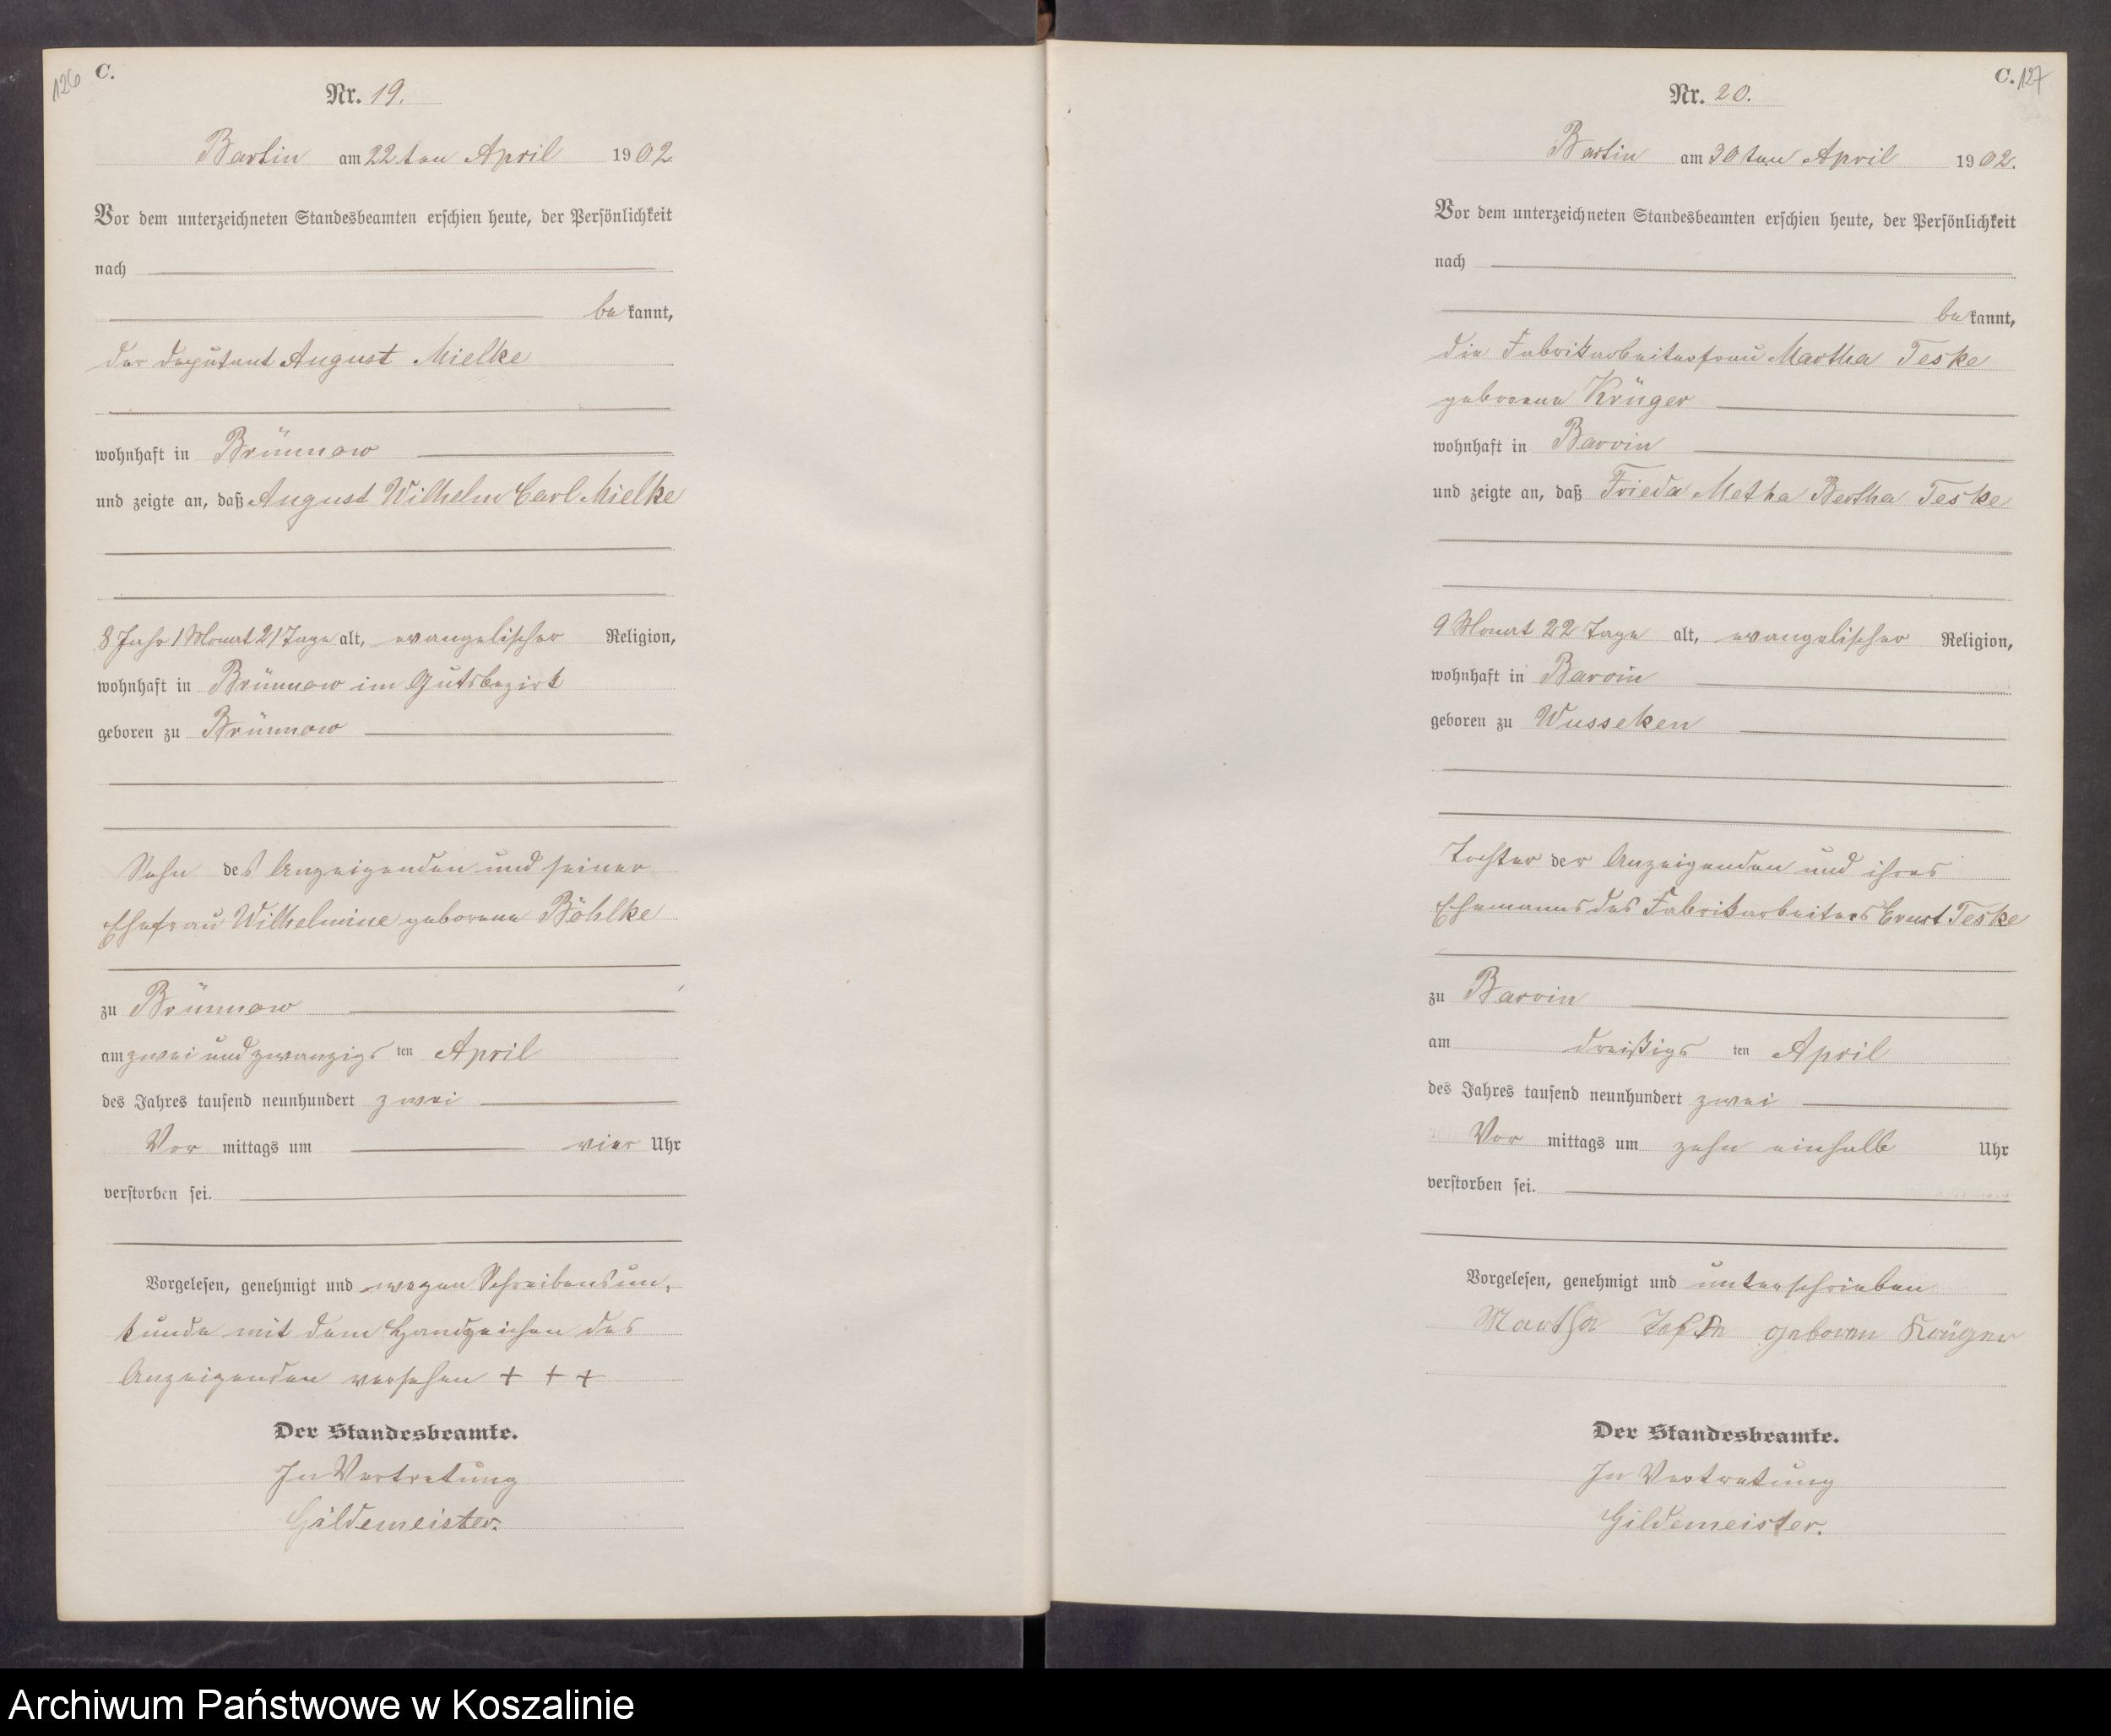 126 C.
Nr. 19.
Bartin am 22ten April 1902.
Vor dem unterzeichneten Standesbeamten erschien heute, der Persönlichkeit
nach
bekannt,
der Deputant August Mielke
wohnhaft in Brünnow
und zeigte an, daß August Wilhelm Carl Mielke
8 Jahr 1 Monat 21 Tage alt, evangelischer Religion,
wohnhaft in Brünnow im Gutsbezirk
geboren zu Brünnow
Sohn des Anzeigenden und seiner
Ehefrau Wilhelmine geborene Böhlke
zu Brünnow
am zwei und zwanzigsten April
des Jahres tausend neunhundert zwei
Vormittags um vier Uhr
verstorben sei.
Vorgelesen, genehmigt und wegen Schreibensun-
kunde mit dem Handzeichen des
Anzeigenden versehen + + +
Der Standesbeamte.
In Vertretung
Gildemeister.
C. 127
Nr. 20.
Bartin am 30ten April 1902.
Vor dem unterzeichneten Standesbeamten erschien heute, der Persönlichkeit
nach
bekannt,
die Fabrikarbeiterfrau Martha Teske
geborene Krüger
wohnhaft in Barvin
und zeigte an, daß Frieda Metha Bertha Teske
9 Monat 22 Tage alt, evangelischer Religion,
wohnhaft in Barvin
geboren zu Wusseken
Tochter der Anzeigenden und ihres
Ehemannes des Fabrikarbeiters Ernst Teske
zu Barvin
am dreißigsten April
des Jahres tausend neunhundert zwei
Vormittags um zehn einhalb Uhr
verstorben sei.
Vorgelesen, genehmigt und unterschrieben
Martha Teske geboren Krüger
Der Standesbeamte.
In Vertretung
Gildemeister.
Archiwum Państwowe w Koszalinie